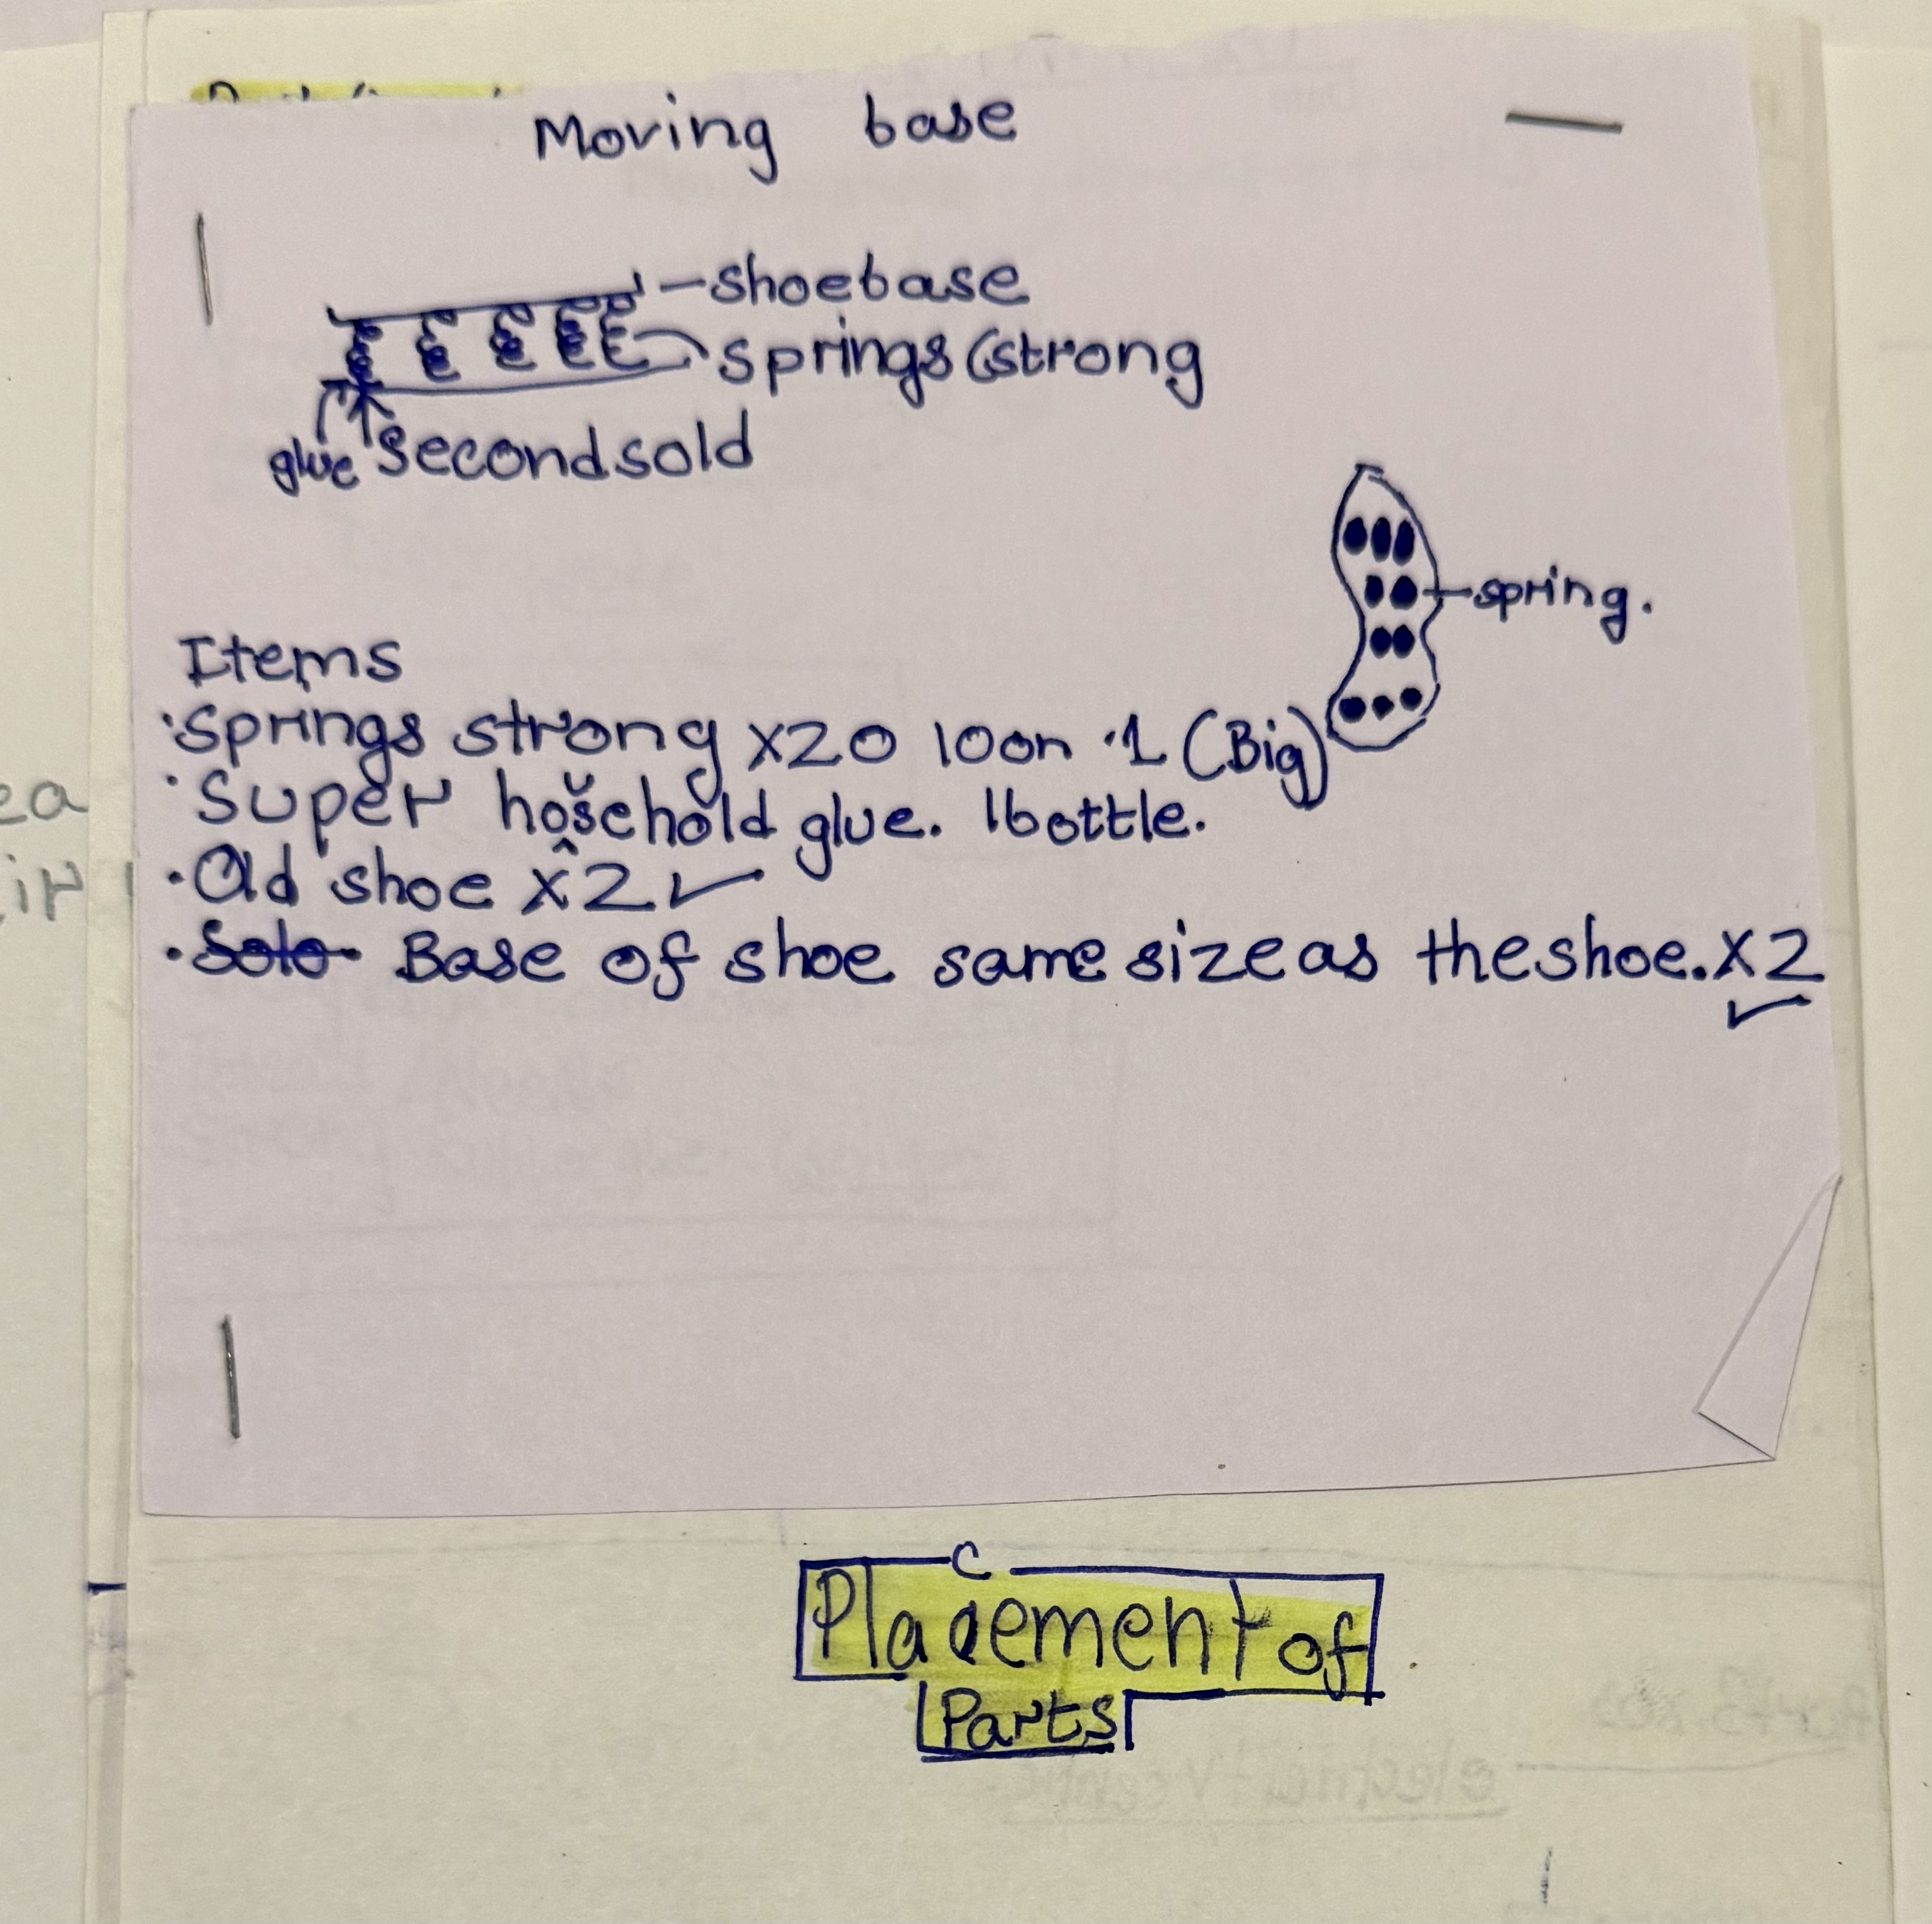 Moving base
shoebase
springs (strong
glue secondsold
spring.
Items
· Springs strong x20 10on ·1 (Big)
· Super household glue. 1bottle.
· Old shoe x2 ✓
· Solo Base of shoe same size as the shoe. x2
✓
ea
ir
c
Placement of
Parts